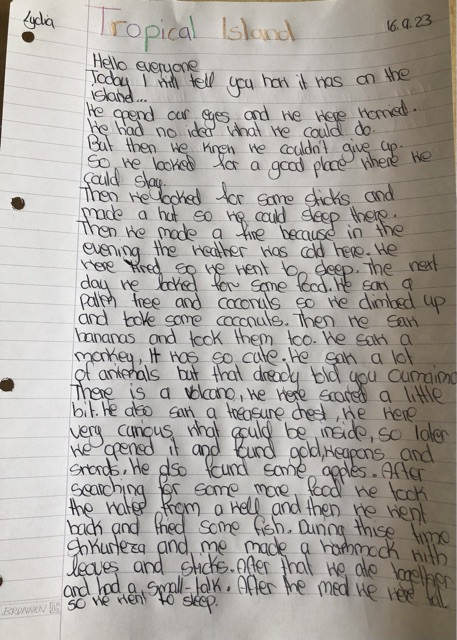 Lydia
Tropical Island
16.9.23
Hello everyone
Today I will tell you how it was on the
island...
We opend our eyes and we were worried.
We had no idea what we could do.
But then we knew we couldn't give up.
So we looked for a good place where we
could stay.
Then we looked for some sticks and
made a hut so we could sleep there.
Then we made a fire because in the
evening the weather was cold here. We
were tired so we went to sleep. The next
day we looked for some food. We saw a
palm tree and coconuts so we climbed up
and took some coconuts. Then we saw
bananas and took them too. We saw a
monkey, It was so cute. We saw a lot
of animals but that already told you
There is a volcano, we were scared a little
bit. We also saw a treasure chest, we were
very curious what could be inside, so later
we opened it and found gold, weapons and
swords. We also found some apples. After
searching for some more food we took
the water from a well and then we went
back and fried some fish. During thise time
and me made a hammock with
leaves and sticks. After that we ate together
and had a small-talk. After the meal we were full
so we went to sleep.
BRUNNEN